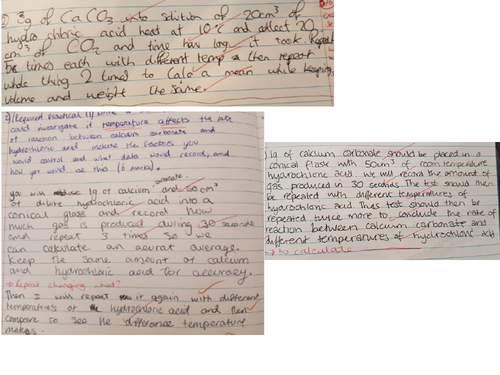 3g of CaCO3 into solution of 20cm³ of
hydrochloric acid heat at 10°c and collect 20
cm³ of CO2 and time how long it took. Repeat
5x times each with different temp then repeat
whole thing 2 times to calc a mean while keeping
volume and weight the same.
Required practical
could investigate if temperature affects the rate
of reaction between calcium carbonate and
hydrochloric acid include the factors you
would control and what data would record, and
how you would use this (6 marks).
carbonate
you will 1g of calcium and 50cm³
of dilute hydrochloric acid into a
conical glass and record how
much gas is produced during 30 seconds
and repeat 3 times so we
can calculate an accurat average.
Keep the same amount of calcium
and hydrochloric acid for accuracy.
→ Repeat changing what?
Then I will repeat it again with different
temperatures of hydrochloric acid and then
compare to see the difference temperature
makes.
1g of calcium carbonate should be placed in a
conical flask with 50cm³ of room temperature
hydrochloric acid. We will record the amount of
gas produced in 30 seconds. The test should then
be repeated with different temperatures of
hydrochloric acid. This test should then be
repeated twice more to conclude the rate of
reaction between calcium carbonate and
different temperatures of hydrochloric acid
to calculate